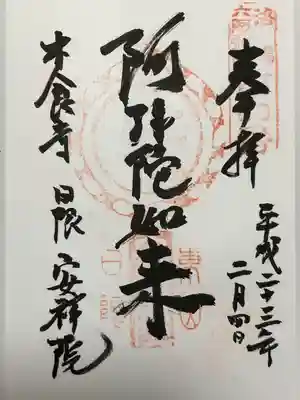 奉拝
平成二十三年
二月四日
阿弥陀如来
木食寺 日限 安祥院